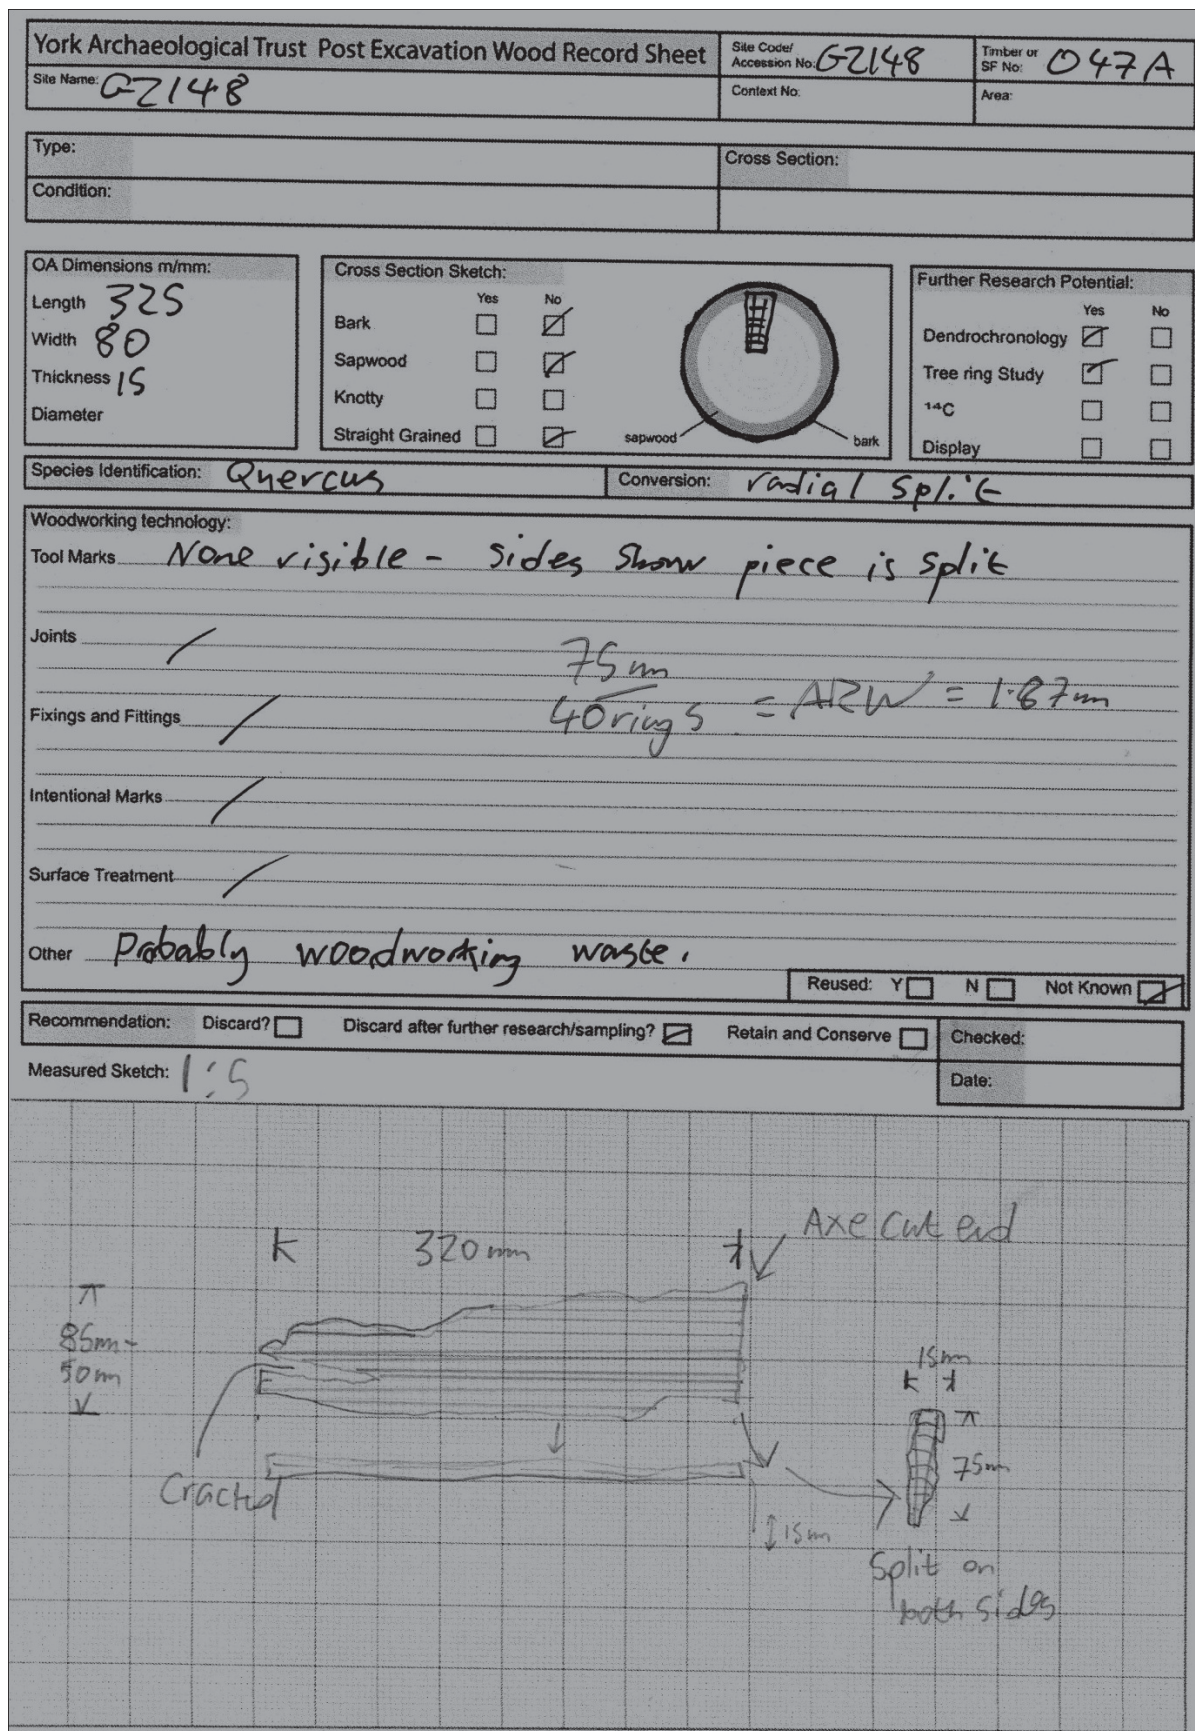 York Archaeological Trust Post Excavation Wood Record Sheet
Site Code/ Accession No: GZ148
Timber or SF No: 047A
Site Name: GZ148
Context No:
Area:
Type:
Cross Section:
Condition:
OA Dimensions m/mm:
Length 325
Width 80
Thickness 15
Diameter
Cross Section Sketch:
Yes No
Bark
Sapwood
Knotty
Straight Grained
sapwood
bark
Further Research Potential:
Yes No
Dendrochronology
Tree ring Study
14C
Display
Species Identification: Quercus
Conversion: radial split
Woodworking technology:
Tool Marks None visible - sides show piece is split
Joints /
75mm
40 rings = ARW = 1.87mm
Fixings and Fittings /
Intentional Marks /
Surface Treatment /
Other Probably woodworking waste.
Reused: Y N Not Known
Recommendation: Discard? Discard after further research/sampling? Retain and Conserve
Checked:
Measured Sketch: 1:5
Date:
Axe cut end
320mm
85mm-
50mm
15mm
75mm
Cracked
15mm
Split on
both sides